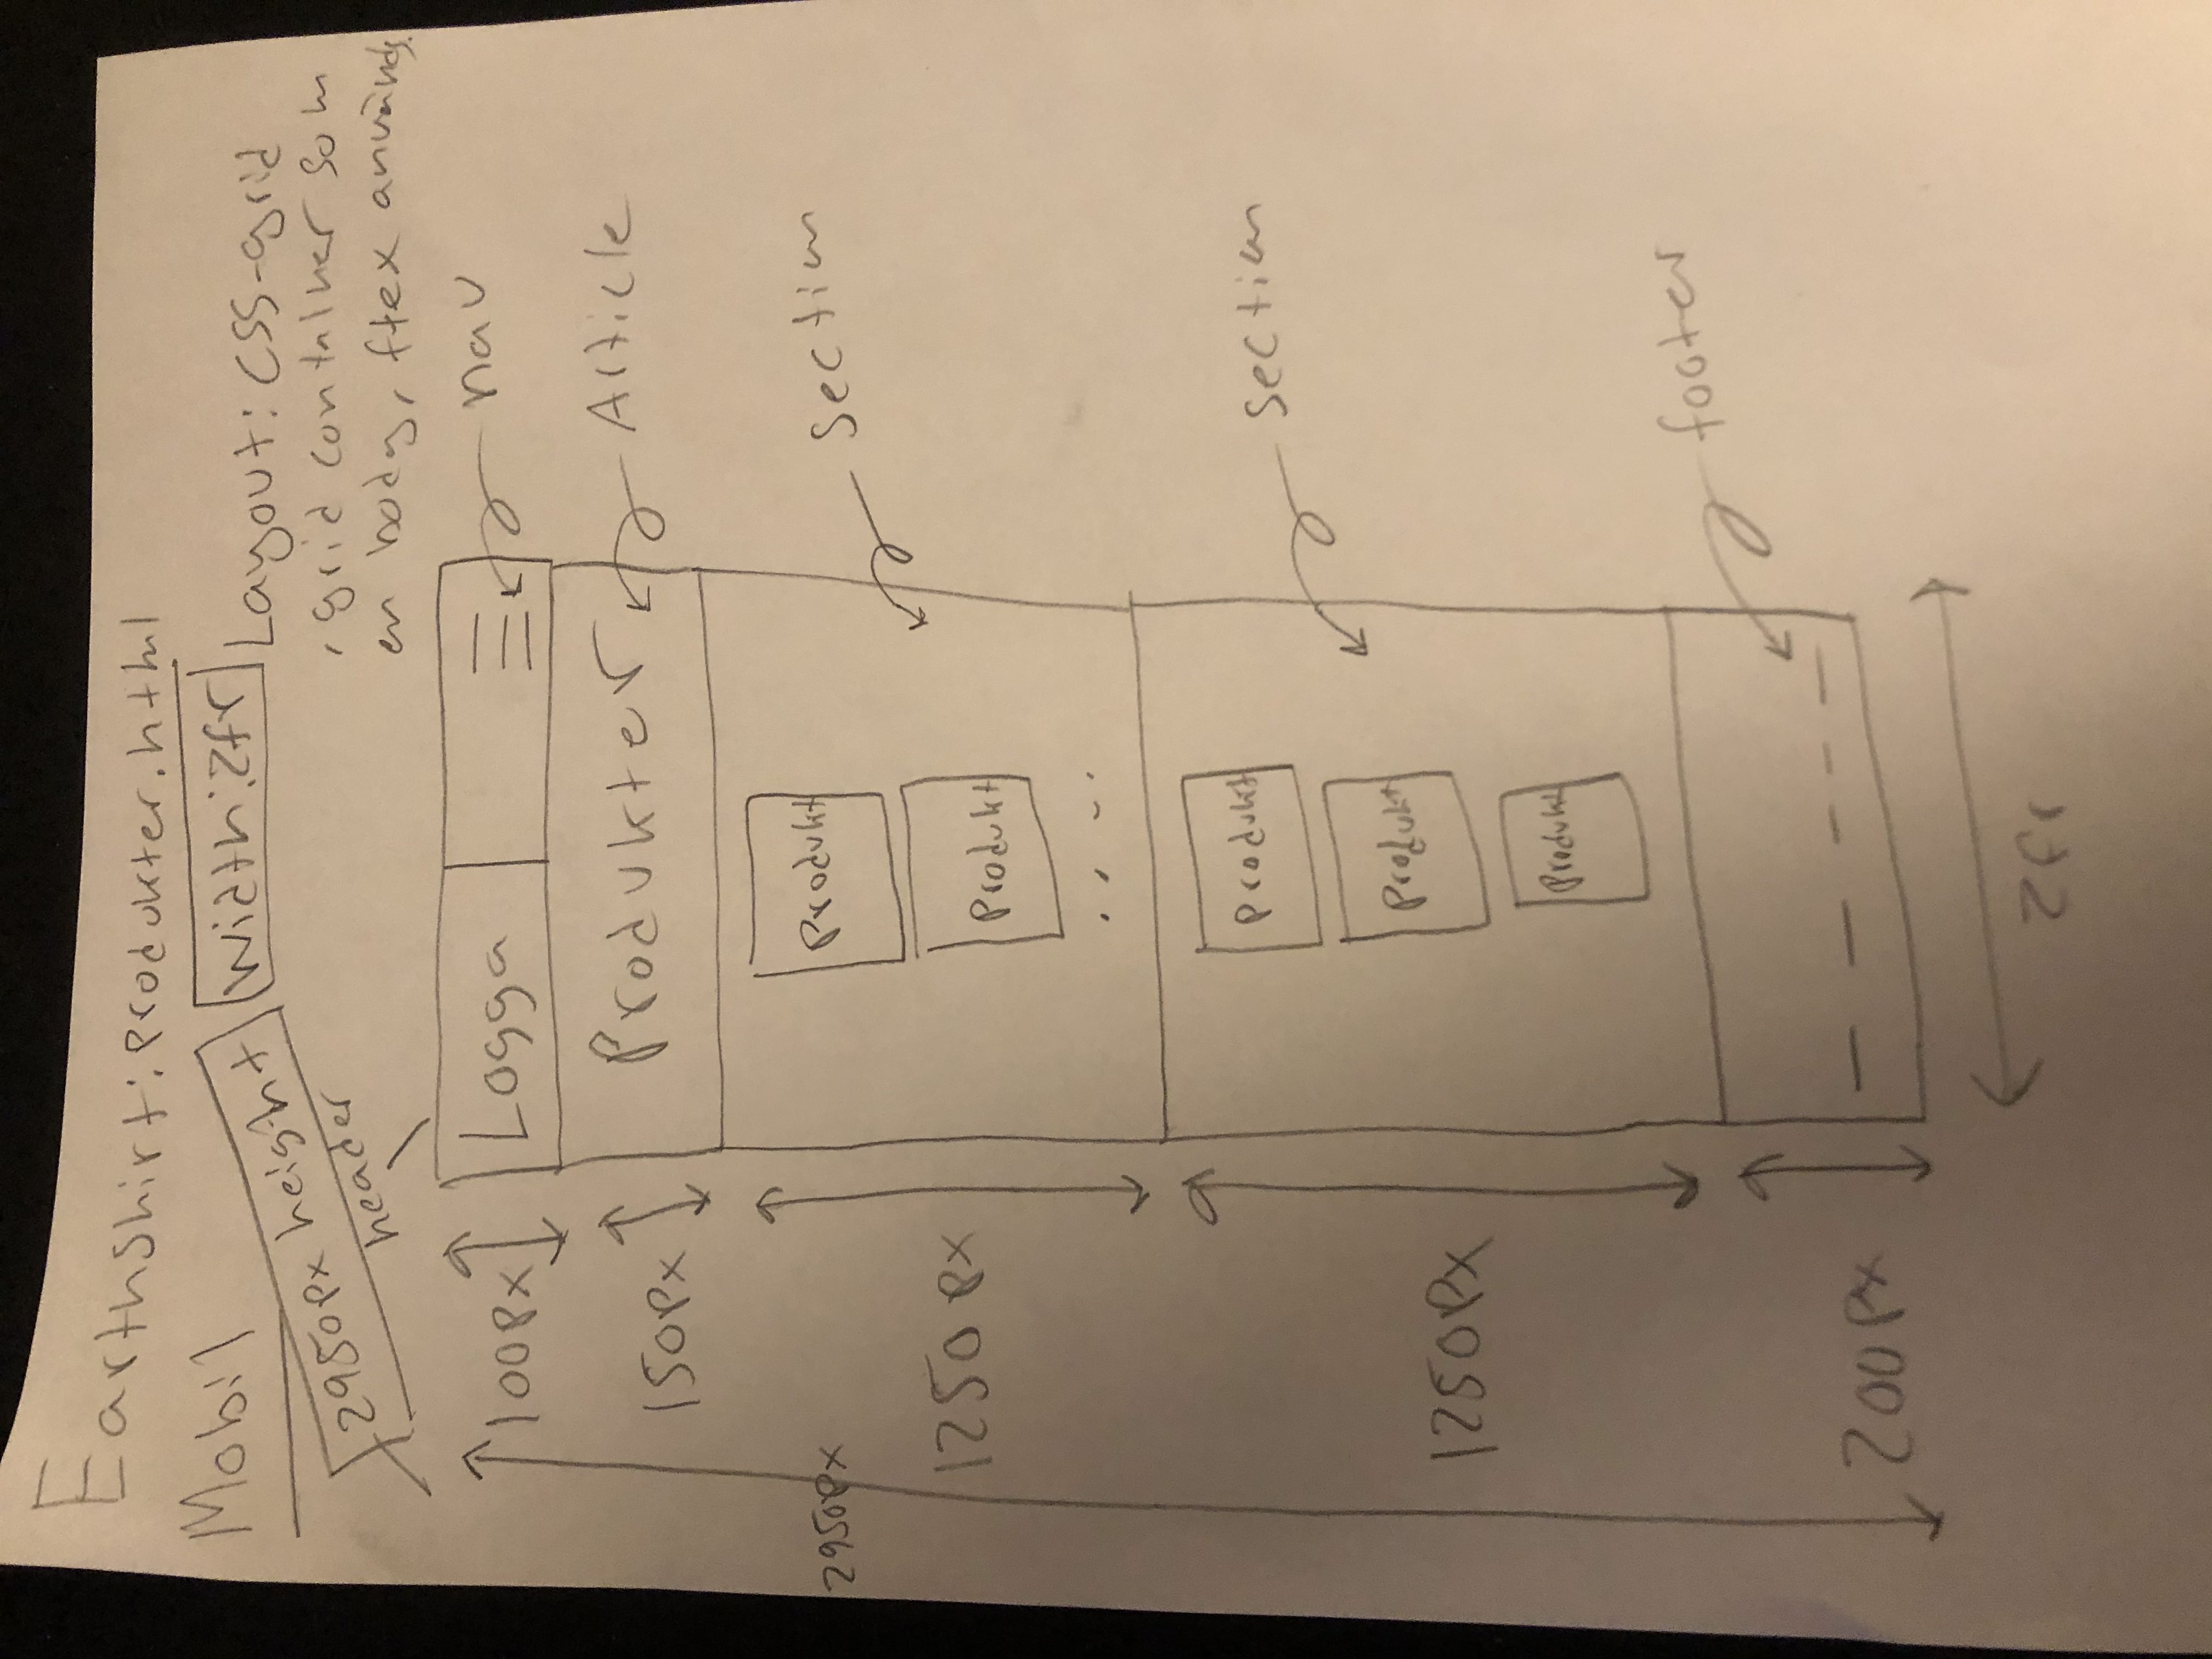 EarthShirt: produkter.html
Mobil
2950px height
Width: 2fr
Layout: CSS-grid
, grid container som
en body, flex används.
header
100px
Logga
nav
150px
Produkter
Article
2950px
1250px
Produkt
Produkt
. . . .
section
1250px
Produkt
Produkt
Produkt
section
200px
footer
2fr